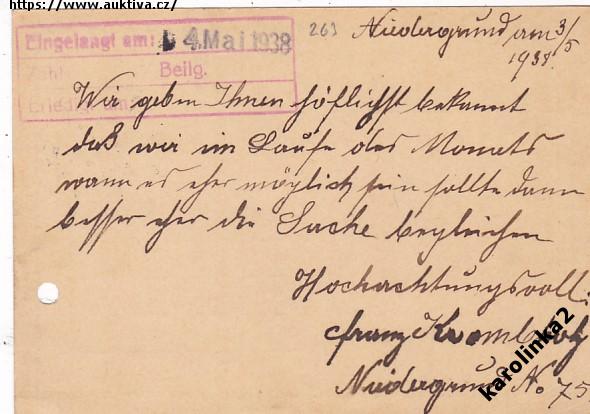 https://www.auktiva.cz/
Eingelangt am: 4. Mai 1938
Zahl Beilg.
Erledigt am
263
Niedergrund am 3/5
1938.
Wir geben Ihnen höflichst bekannt
daß wir im Laufe des Monats
wann es eher möglich sein sollte dann
besser eher die Sache begleichen
Hochachtungsvoll:
Franz
Niedergrund No 75
karolinka2